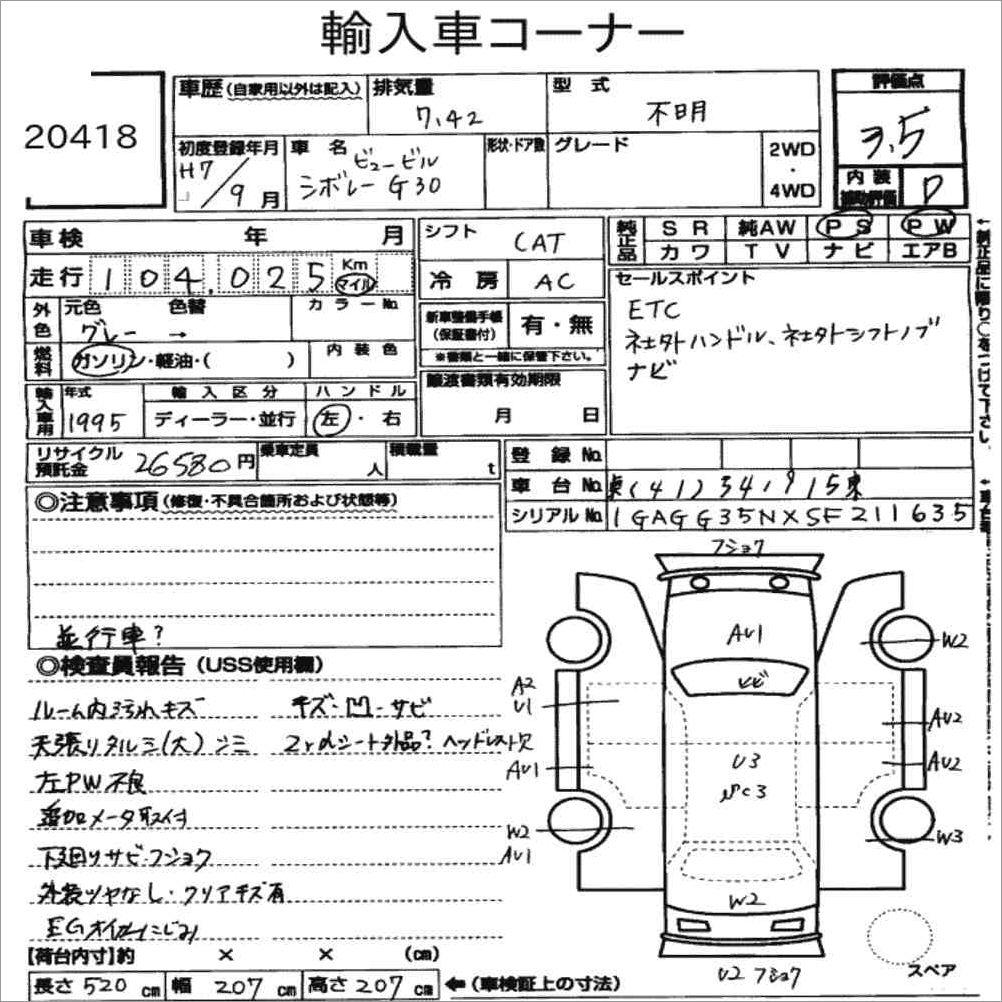 輸入車コーナー
20418
車歴(自家用以外は記入) 排気量 7.42 型式 不明 評価点 3.5
初度登録年月 H7/9月 車名 ビュービル シボレー G30 形状・ドア数 グレード 2WD・4WD 内装補助評価 D
車検 年 月 シフト CAT 純正品 SR 純AW PS PW
カワ TV ナビ エアB
走行 104,025 Km マイル 冷房 AC
←純正品に限り○をつけて下さい。
セールスポイント
ETC
社外ハンドル、社外シフトノブ
ナビ
外色 元色 グレー → 色替 カラーNo. 新車整備手帳(保証書付) 有・無
※書類と一緒に保管下さい。
燃料 ガソリン・軽油・( ) 内装色
譲渡書類有効期限 月 日
輸入車用 年式 1995 輸入区分 ディーラー・並行 ハンドル 左・右
リサイクル預託金 26580円 乗車定員 人 積載量 t
登録No.
車台No. 東(41)341915東
シリアルNo. 1GAGG35NXSF211635
◎注意事項(修復・不具合箇所および状態等)
並行車?
◎検査員報告(USS使用欄)
ルーム内汚れキズ キズ・凹・サビ
天張りタルミ(大)ジミ 2ndシート外品? ヘッドレスト欠
左PW不良
追加メータ取付
下廻りサビ・フショク
外装ツヤなし・クリアキズ有
EGオイルにじみ
【荷台内寸】約 × × (cm)
長さ 520 cm 幅 207 cm 高さ 207 cm ←(車検証上の寸法)
フショク
AU1
W2
ヒビ
A2
U1
AU2
U3
AU1
AU2
W2
W3
AU1
W2
U2 フショク
スペア